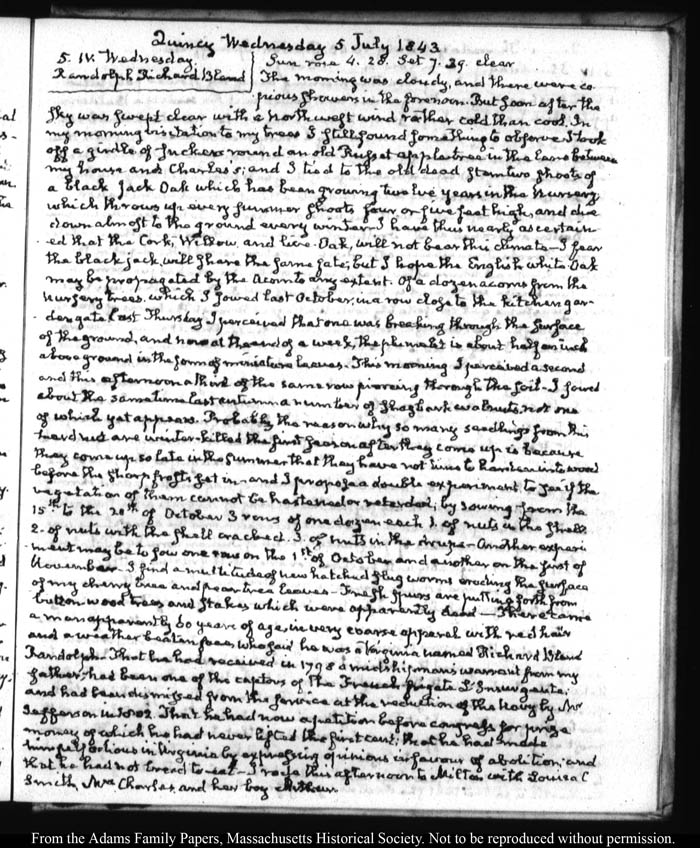 Quincy Wednesday 5 July 1843
5. IV. Wednesday.
Randolph Richard Bland
Sun rose 4. 28. Set 7. 39. clear
The morning was cloudy, and there were co-
pious showers in the forenoon. But soon after the
sky was swept clear with a northwest wind rather cold than cool. In
my morning visitation to my trees I still found something to observe. I took
off a girdle of suckers round an old Russet appletree in the lane between
my house and Charles's; and I tied to the old dead stem two shoots of
a black Jack Oak which has been growing twelve years in the nursery
which throws up every summer shoots four or five feet high, and die
down almost to the ground every winter. I have thus nearly ascertain-
ed that the Cork, Willow, and live-Oak, will not bear this climate—I fear
the black jack, will share the same fate; but I hope the English white Oak
may be propagated by the Acorn to any extent. Of a dozen acorns from the
nursery trees. which I sowed last October, in a row close to the kitchen gar-
den gate last Thursday I perceived that one was breaking through the surface
of the ground, and now at the end of a week, the plant is about half an inch
above ground in the form of miniature leaves. This morning I perceived a second
and this afternoon a third of the same row piercing through the soil—I sowed
about the same time last autumn a number of shagbark walnuts, not one
of which yet appears. Probably the reason why so many seedlings from this
hard nut are winter-killed the first season after they come up is because
they come up so late in the summer that they have not time to harden into wood
before the sharp frosts set in—and I propose a double experiment to see if the
vegetation of them cannot be hastened or retarded; by sowing from the
15th to the 20th of October 3 rows of one dozen each 1. of nuts in the shell
2. of nuts with the shell cracked. 3. of nuts in the drupe—Another experi
ment may be to sow one row on the 1st of October and another on the first of
November—I find a multitude of new hatched slug worms eroding the surface
of my cherry tree and pear tree leaves—Fresh spurs are putting forth from
button-wood trees and stakes which were apparently dead—There came
a man apparently 60 years of age, in very coarse apparel with red hair
and a weather beaten face, who said he was a Virginia named Richard Bland
Randolph—That he had received in 1798 a midshipman's warrant from my
father; had been one of the captors of the French frigate L'Insurgente;
and had been dismissed from the service at the reduction of the Navy by Mr
Jefferson in 1802. That he had now a petition before Congress for prize
money of which he had never lifted the first cent; that he had made
himself odious in Virginia by expressing opinions in favour of abolition; and
that he had not bread to eat—I rode this afternoon to Milton with Louisa C
Smith, Mrs Charles, and her boy Arthur.
From the Adams Family Papers, Massachusetts Historical Society. Not to be reproduced without permission.